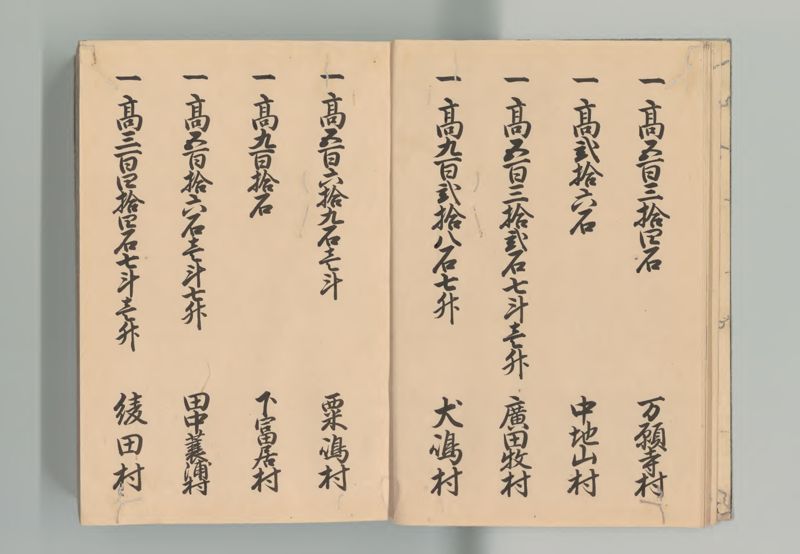 一 高五百三拾四石 万願寺村
一 高弐拾六石 中地山村
一 高五百三拾弐石七斗壱升 廣田牧村
一 高九百弐拾八石七升 犬嶋村
一 高五百六拾九石壱斗 粟嶋村
一 高九百拾石 下冨居村
一 高五百拾六石壱斗七升 田中蓑浦村
一 高三百四拾四石七斗壱升 綾田村